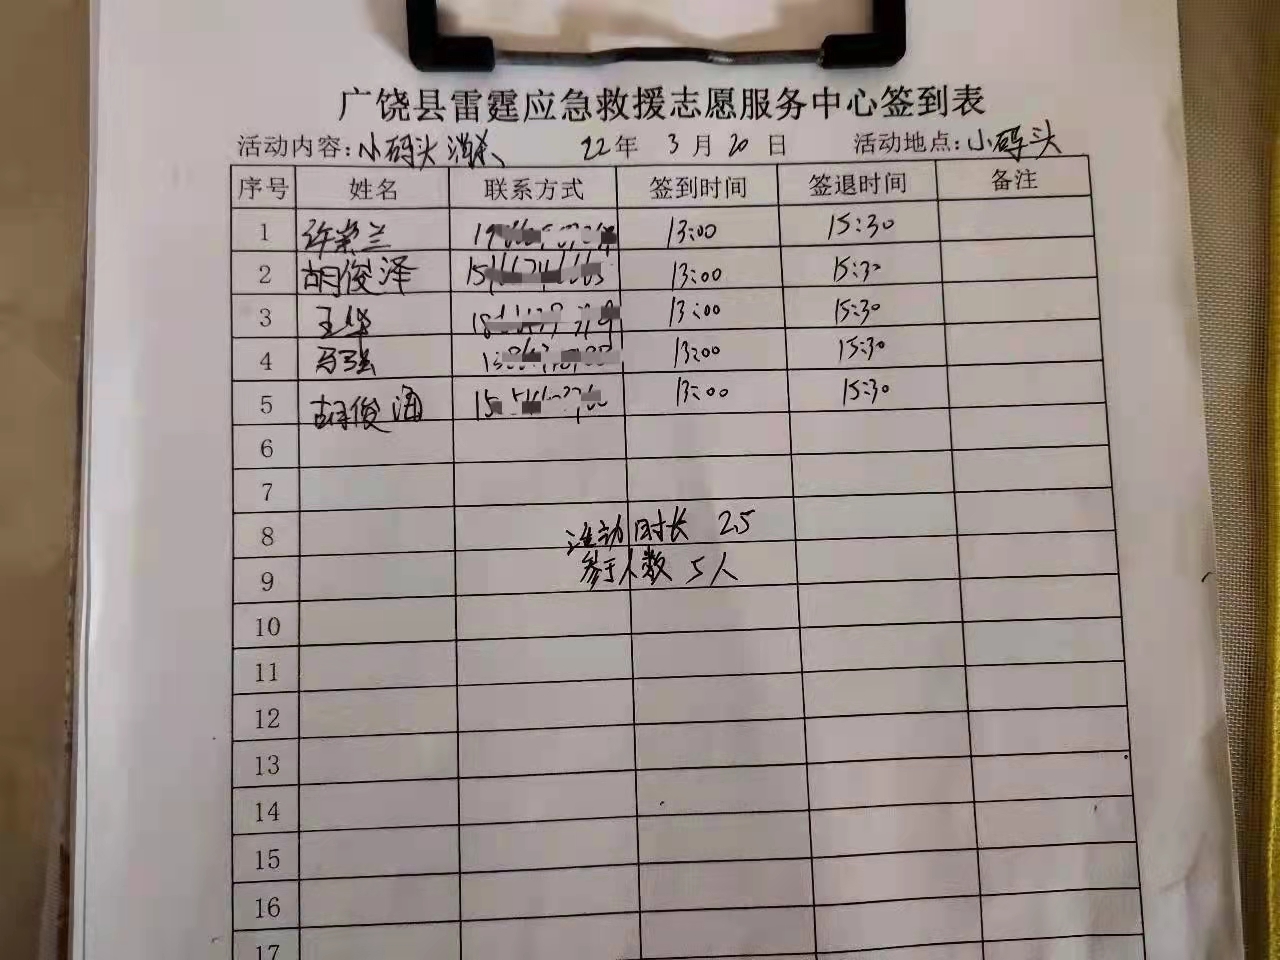 广饶县雷霆应急救援志愿服务中心签到表
活动内容:小码头 消杀 22年 3月20日 活动地点:小码头
序号 姓名 联系方式 签到时间 签退时间 备注
1 许崇兰 13:00 15:30
2 胡俊泽 13:00 15:30
3 王华 13:00 15:30
4 马强 13:00 15:30
5 胡俊涌 13:00 15:30
6
7
8 活动时长 2.5
9 参于人数 5人
10
11
12
13
14
15
16
17